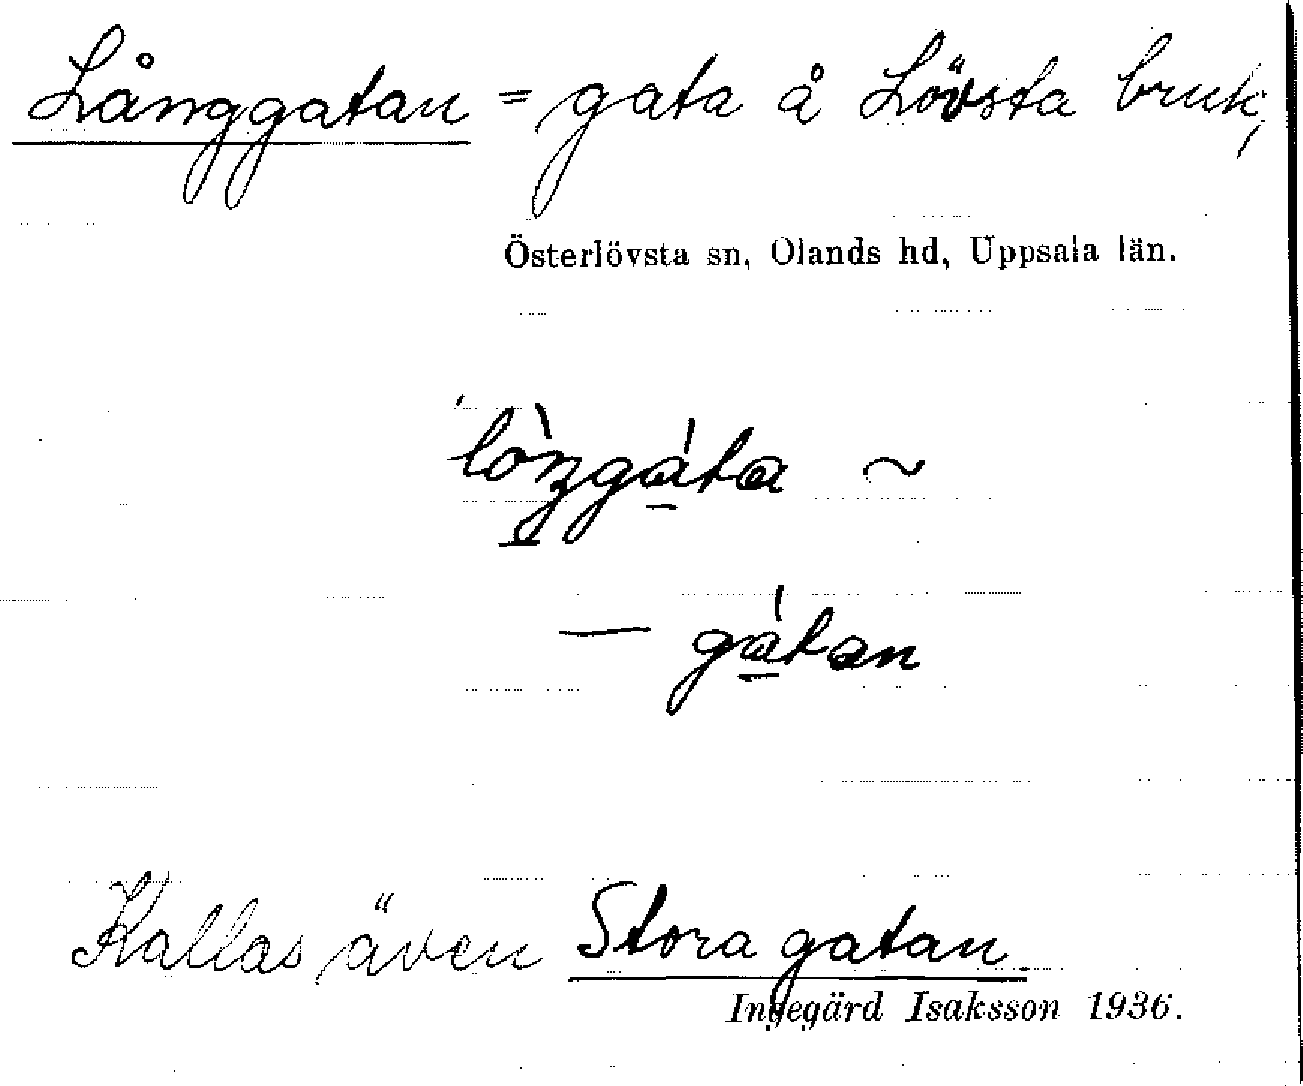 Långgatan = gata å Lövsta bruk,
Österlövsta sn, Olands hd, Uppsala län.
lòŋgáta ~
— gátan
Kallas även Stora gatan
Ingegärd Isaksson 1936.